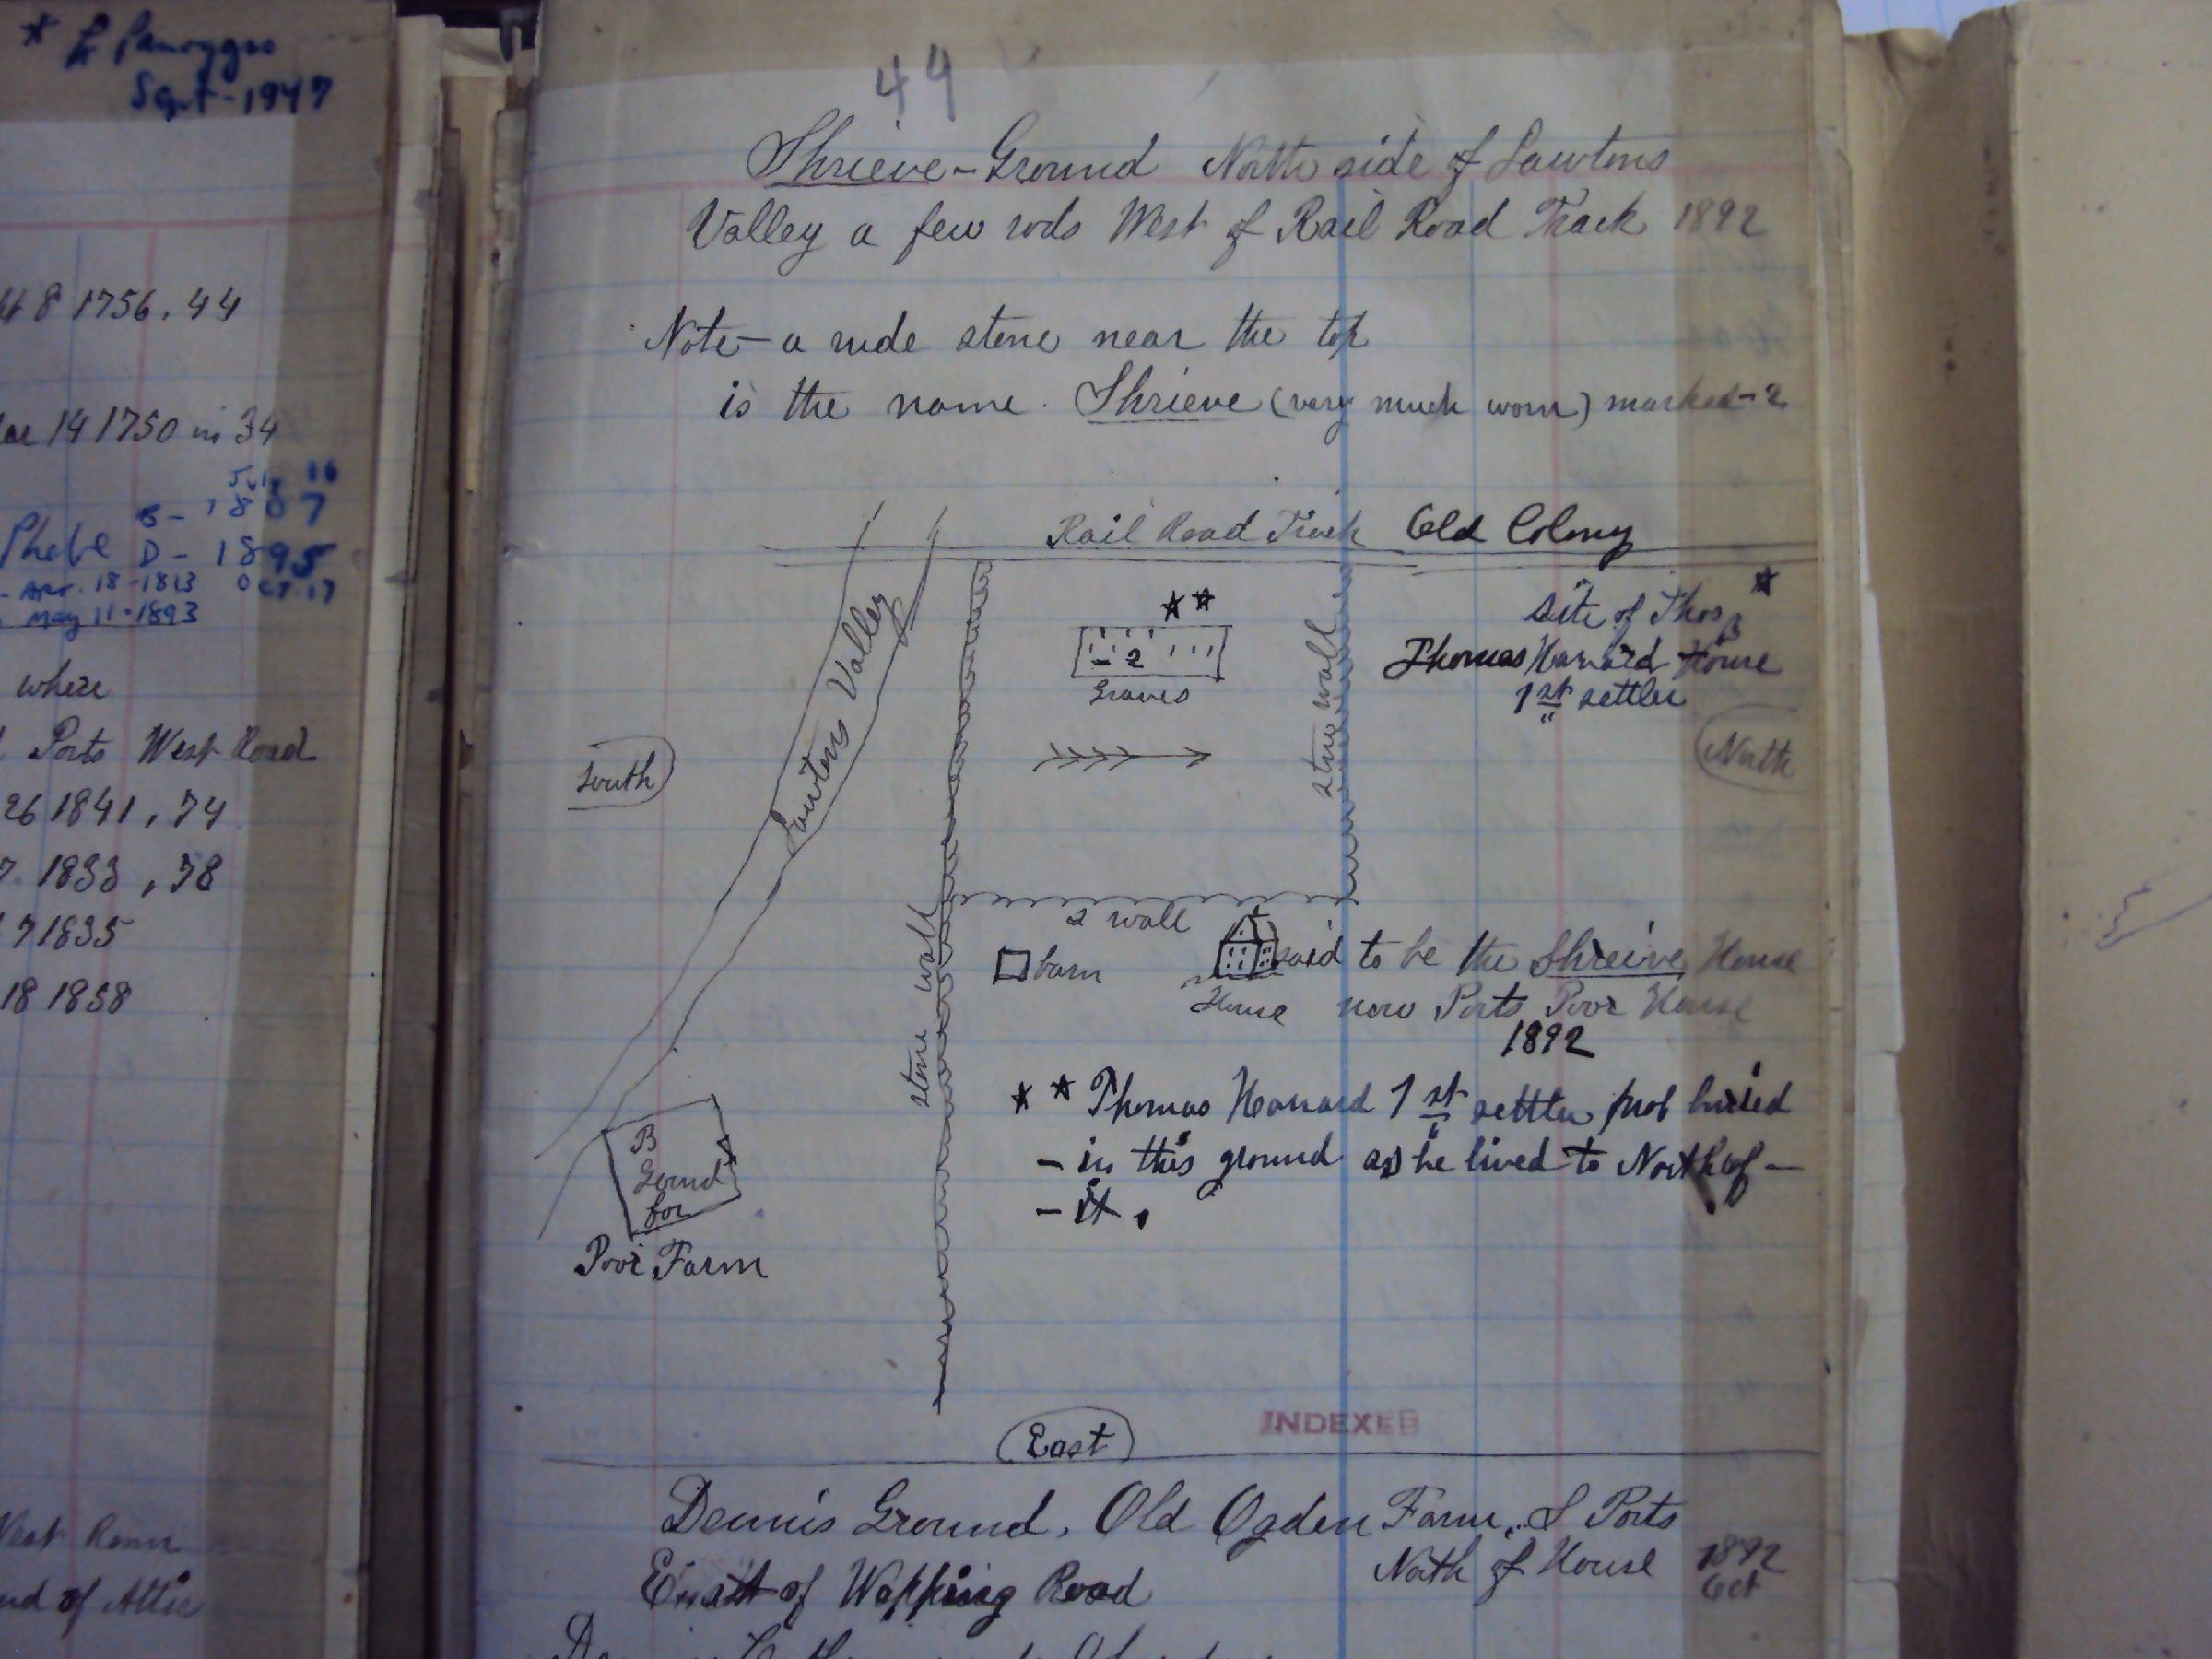 Sept - 1947
8 1756, 44
14 1750 in 34
July 16
B - 1807
Phebe D - 1895
Apr. 18 - 1813 Oct 17
May 11 - 1893
where
Ports West Road
26 1841, 74
1833, 78
7 1835
18 1858
West Road
nd of
44
Shrieve - Ground North side of Lawtons
Valley a few rods West of Rail Road Track 1892
Note - a rude stone near the top
is the name. Shrieve (very much worn) marked - 2
Rail Road Track Old Colony
site of Thos *
Thomas Hazard House
1st settler
**
- 2
Graves
Lawtons Valley
stone wall
stone wall
South
North
s wall
barn
House
said to be the Shreive House
now Ports Poor House
1892
* * Thomas Hazard 1st settler prob buried
- in this ground as he lived to North of -
- it.
B
Ground
for
Poor Farm
East
INDEXED
Dennis Ground, Old Ogden Farm, S Ports
East of Wapping Road North of House 1892
Oct